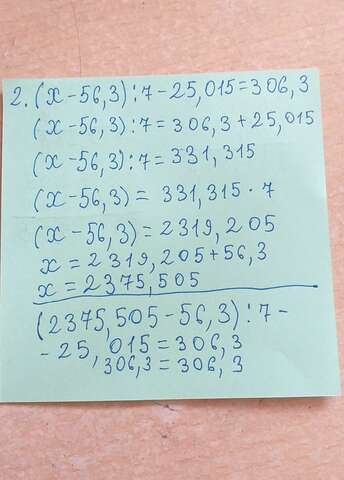 2. (x-56,3):7-25,015=306,3
(x-56,3):7=306,3+25,015
(x-56,3):7=331,315
(x-56,3)=331,315·7
(x-56,3)=2319,205
x=2319,205+56,3
x=2375,505
(2375,505-56,3):7-
-25,015=306,3
306,3=306,3